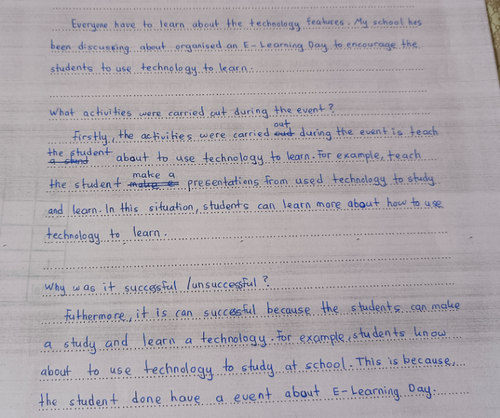 Everyone have to learn about the technology features. My school has
been discussing about organised an E-Learning Day to encourage the
students to use technology to learn.
What activities were carried out during the event?
Firstly, the activities were carried out during the event is teach
the student about to use technology to learn. For example, teach
the student make a presentations from used technology to study
and learn. In this situation, students can learn more about how to use
technology to learn.
Why was it successful / unsuccessful?
Futhermore, it is can successful because the students can make
a study and learn a technology. For example, students know
about to use technology to study at school. This is because,
the student done have a event about E-Learning Day.